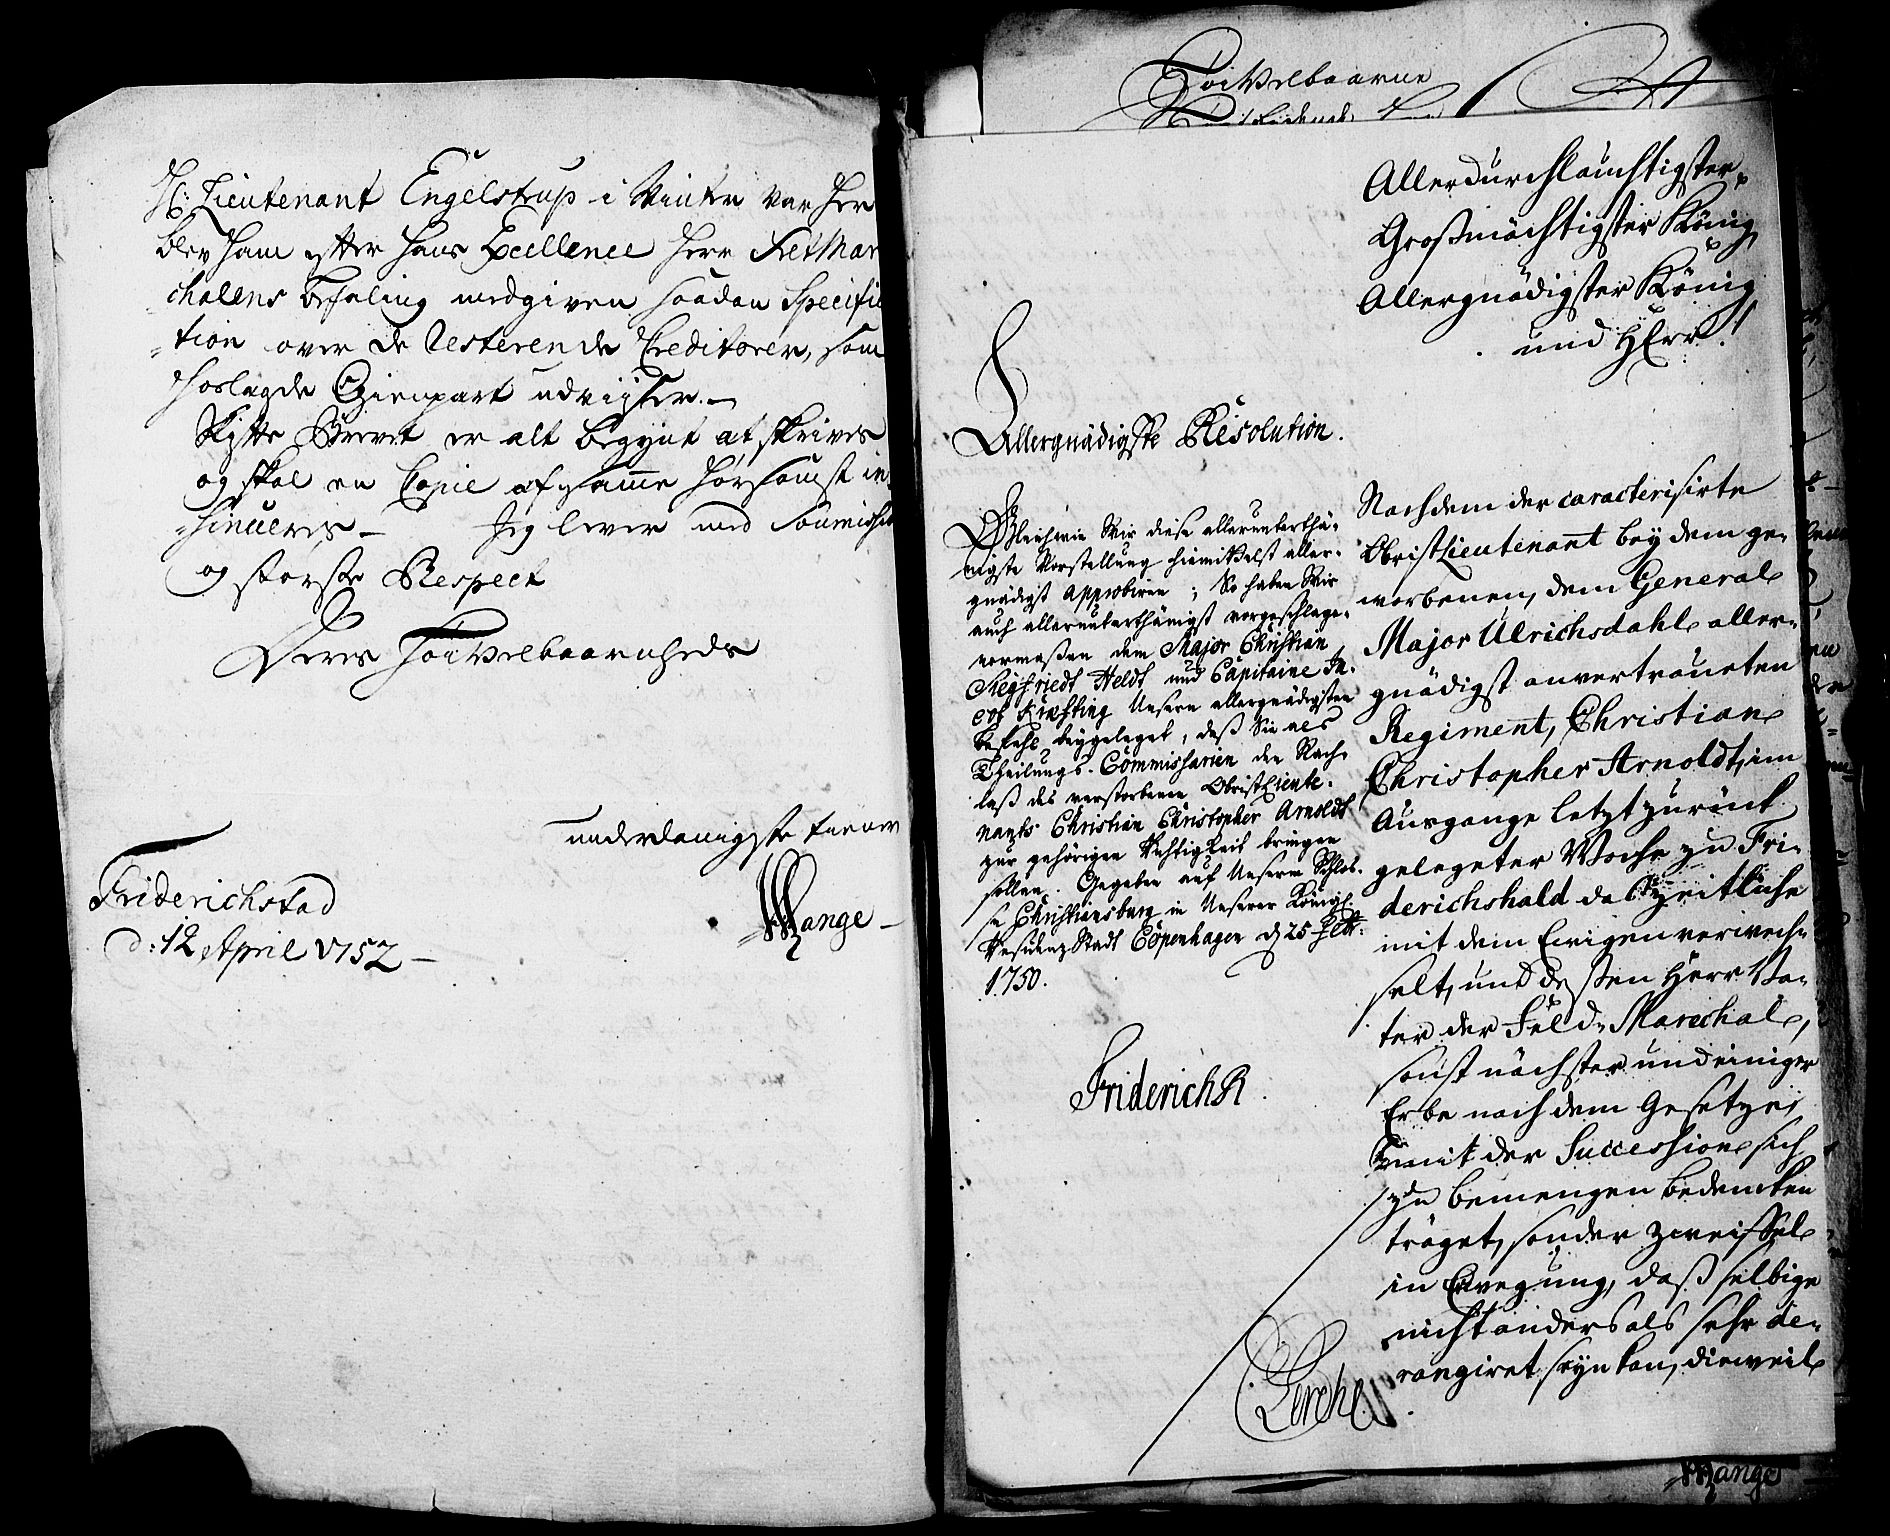 Hr: Lieutenant Engelstrup i Vinter var her
blev ham efter hans Excellence Herr Feltmar
chalens befaling medgiven saadan Specifica
=tion over de Resterende Creditorer, som
hoslagde Gienpart udviiser.—
Skifte Brevet er alt begynt at skrives
og skal en Copie af samme hørsomst in
=sinueris — Jeg lever med
og største Respect
Deres HøiVelbaarnheds
underdanigste tiener
Mange —
Friderichstad
d: 12 April 1752 —
HøiVelbaarne
Allerdurchlauchtigster,
Großmächtigster König,
Allergnädigster König
und HErr!
Allergnädigste Resolution.
Gleichwie Wir diese allerunterthä-
nigste Vorstellung hiemittelst aller-
gnädigst approbiren; So haben Wir
auch allerunterthänigst vorgeschlage-
nermaßen dem Major Christian
Siegfriedt Heldt und Capitaine Ja-
cob Kiefting Unsern allergnädigsten
Befehl beygeleget, daß Sie als
Theilungs-Commissarien den Nach-
laß des verstorbenen ObristLieute-
nants Christian Christopher Arnoldt
zur gehörigen Richtigkeit bringen
sollen. Gegeben auf Unserm Schlos-
se Christiansburg in Unserer Königl.
ResidenzStadt Copenhagen d 25 Febr:
1750.
Friderich R.
Lerche
Nachdem der caracterisirte
ObristLieutenant bey dem ge-
worbenen, dem General
Major Ulrichsdahl aller-
gnädigst anvertraueten
Regiment, Christian
Christopher Arnoldt, im
Ausgange letzt zurück
gelegeter Woche zu Fri-
derichshald das Zeitliche
mit dem Ewigen verwech-
selt, und deßen Herr Va-
ter der Feld-Marechal,
sonst nächster und einiger
Erbe nach dem Gesetze,
mit der Succession sich
zu bemengen bedencken
träget, sonder Zweiffel
in Erwegung, daß selbige
nicht anders als sehr de-
rangiret seyn kan, dieweil
Mange